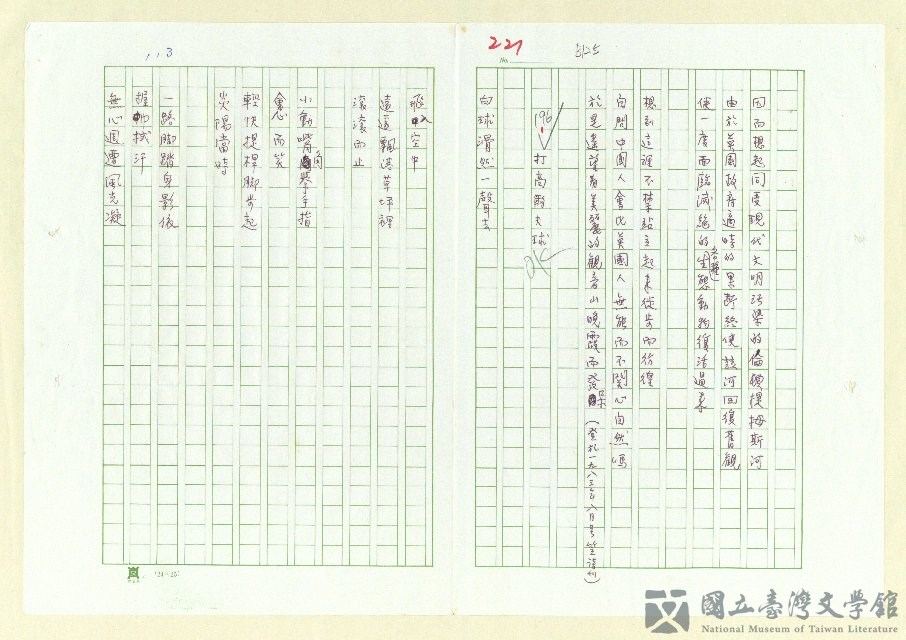 221
3125
No.
因而想起同受現代文明污染的倫敦提姆斯河
由於英國政府適時的果斷終使該河回復舊觀
使一度面臨滅絕的各種生態動物復活過來
想到這裡不禁站立起來從步而彷徨
自問中國人會比英國人無能而不關心自然嗎
於是遠望着美麗的觀音山晚霞而發呆（發於一九八三年八月号笠詩刊）
196
打高爾夫球
OK
白球滑然一聲去
113
飛入空中
遠遠飄落草坪裡
滾滾而止
小動嘴角舉手指
會心而笑
輕快提桿脚步起
炎陽當時
一路脚踏身影依
握帕拭汗
無心週遭風光凝
國立臺灣文學館
National Museum of Taiwan Literature